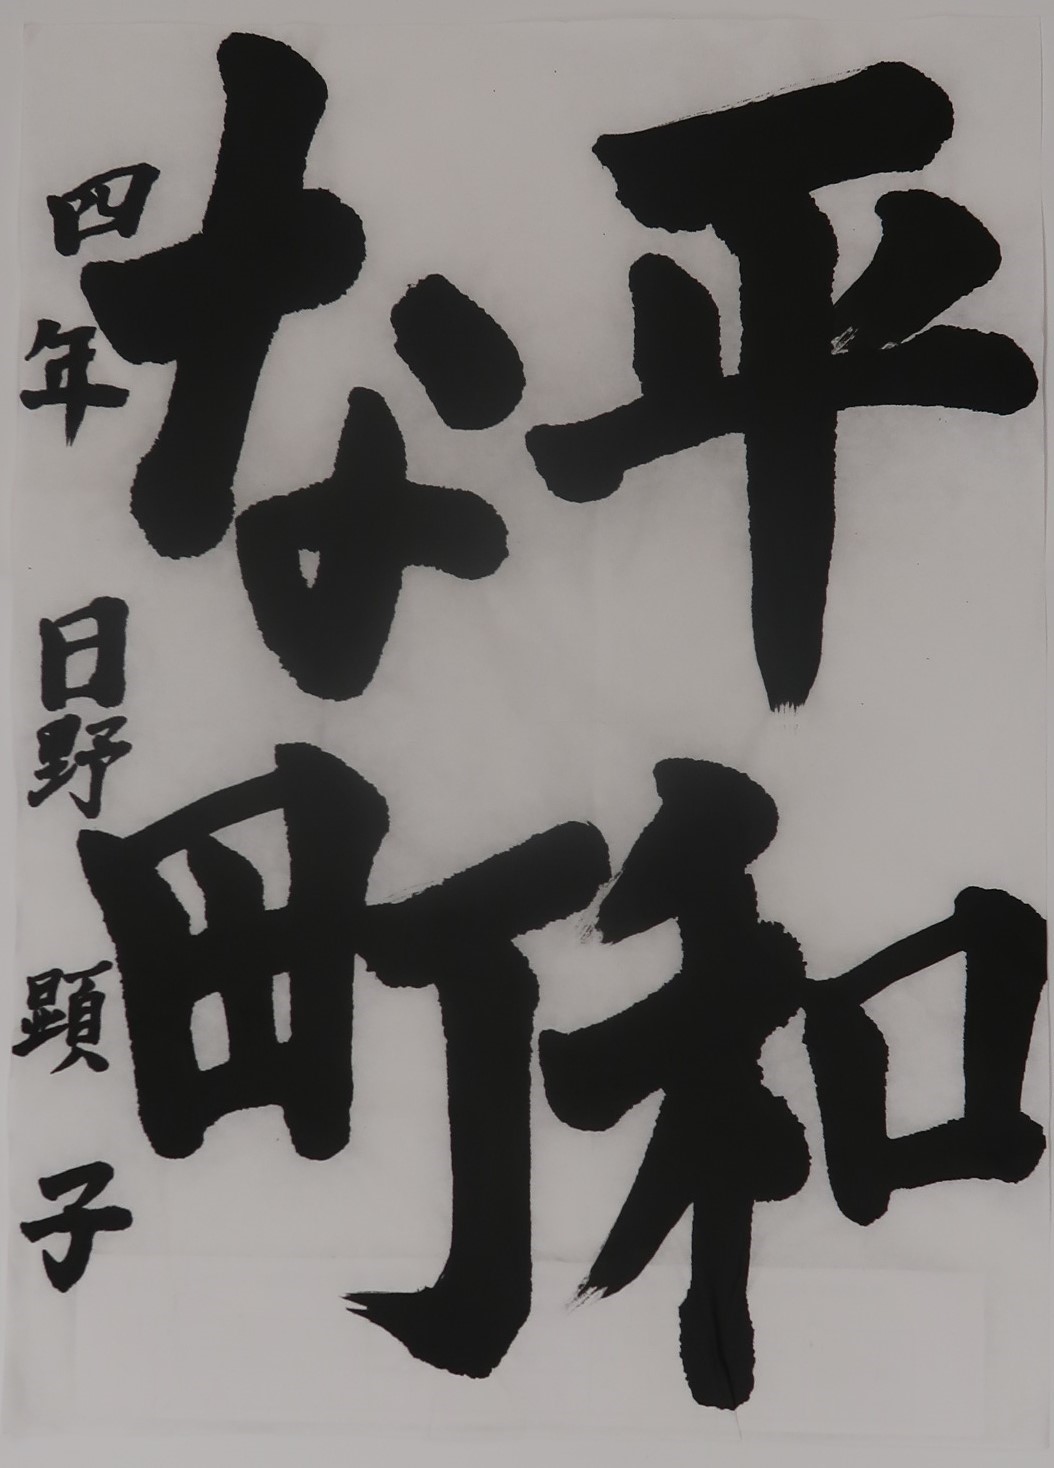 平和
な町
四年 日野顕子